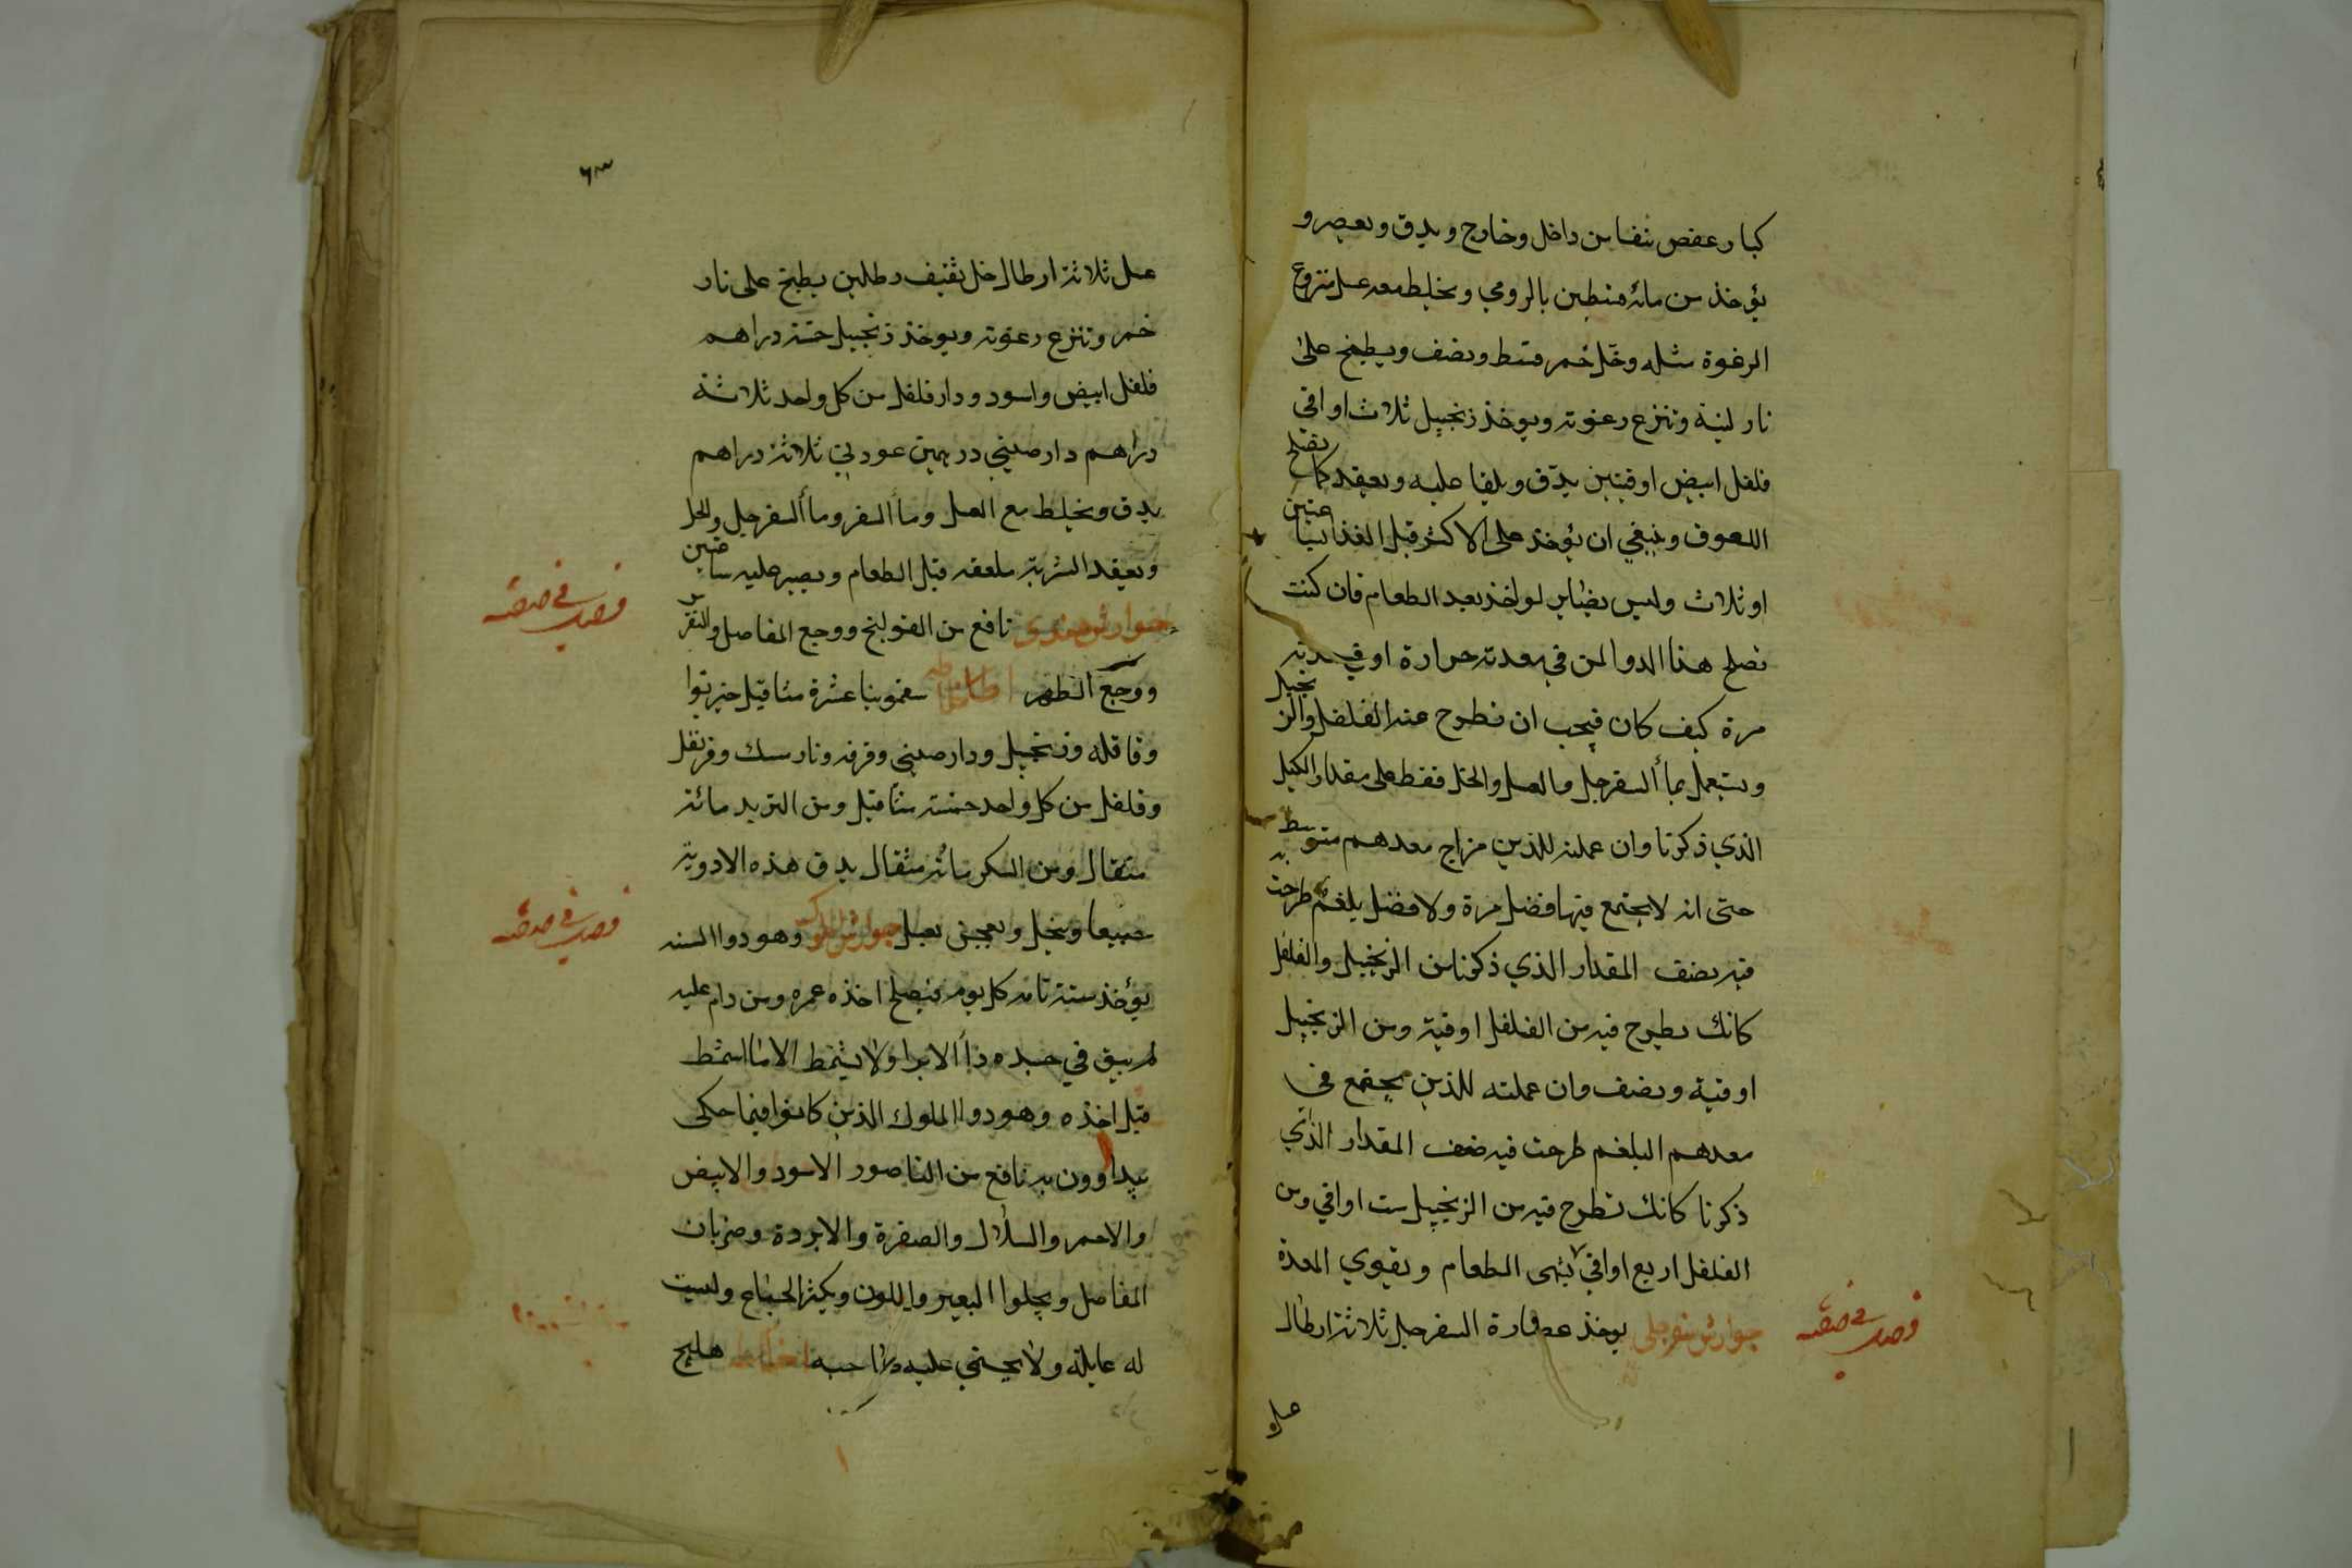 كبار عفص ينقا من داخل وخارج ويدق ويعصر و
يؤخذ من مائه قسطين بالرومي ويخلط معه عسل منزوع
الرغوة مثله وخل خمر قسط ونصف ويطبخ على
نار لينة وتنزع رغوته ويوخذ زنجبيل ثلاث اواقي
فلفل ابيض اوقيتين يدق ويلقا عليه ويعقد كما يفعل
اللعوق وينبغي ان يؤخذ على الاكثر قبل الغذا بساعتين
او ثلاث وليس بضاير لو اخذ بعد الطعام فان كنت
تصلح هذا الدوا لمن في معدته حرارة او فيه
مرة كيف كان فيجب ان تطرح عنه الفلفل والزنجبيل
ويستعمل بماأ السفرجل والعسل والخل فقط على مقدار الكيل
الذي ذكرنا وان عملته للذين مزاج معدهم متوسط
حتى انه لا يجتمع فيها فضل مرة ولا فضل بلغم طرحت
فيه نصف المقدار الذي ذكرنا من الزنجبيل والفلفل
كانك تطرح فيه من الفلفل اوقية ومن الزنجبيل
اوقية ونصف وان عملته للذين يجتمع في
معدهم البلغم طرحت فيه ضعف المقدار الذي
ذكرنا كانك تطرح فيه من الزنجبيل ست اواقي ومن
الفلفل اربع اواقي يشهى الطعام ويقوي المعدة
جوارش سفرجلي يوخذ عصارة السفرجل ثلاثة ارطال
عسل
٦٣
عسل ثلاثة ارطال خل ثقيف رطلين يطبخ على نار
خمر وتنزع رغوته ويوخذ زنجبيل خمسة دراهم
فلفل ابيض واسود ودار فلفل من كل واحد ثلاثة
دراهم دارصيني درهمين عود ني ثلاثة دراهم
يدق ويخلط مع العسل وماأ السفرجل والخل
ويعقد الشربة ملعقه قبل الطعام ويصبر عليه ساعتين
جوارش نافع من القولنج ووجع المفاصل والنقرس
ووجع الظهر اخلاطه سقمونيا عشرة مثاقيل خيربوا
وقاقله وزنجبيل ودارصيني وقرفه ونارمسك وقرنفل
وفلفل من كل واحد خمسة مثاقيل ومن التربد مائة
مثقال ومن السكر مائة مثقال يدق هذه الادوية
جميعا وينخل ويعجن بعسل جوارش الملوك وهو دوا السنه
يؤخذ سنة تامه كل يوم فيصلح اخذه عمره ومن دام عليه
لم يبق في جسده داأ الا برا ولا يشمط الا ما اشمط
قبل اخذه وهو دوا الملوك الذين كانوا فيما حكى
يداوون به نافع من الناصور الاسود والابيض
والاحمر والسلال والصفرة والابردة وضربان
المفاصل ويجلوا البصر واللون ويكثر الجماع وليست
له غايلة ولا يحتمي عليه صاحبه اخلاطه هليلج